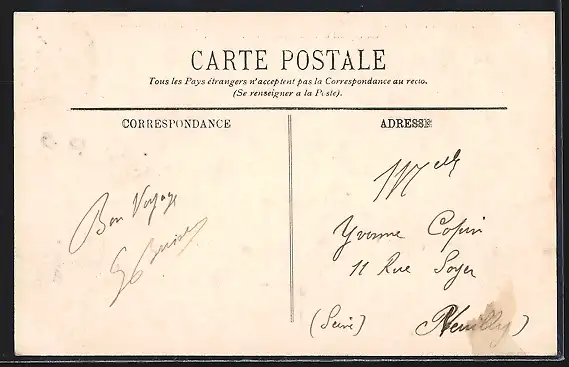 CARTE POSTALE
Tous les Pays étrangers n'acceptent pas la Correspondance au recto.
(Se renseigner a la Poste).
CORRESPONDANCE
ADRESSE
Bon Voyage
Melle
Yvonne Copin
11 Rue Soyer
(Seine) Neuilly)